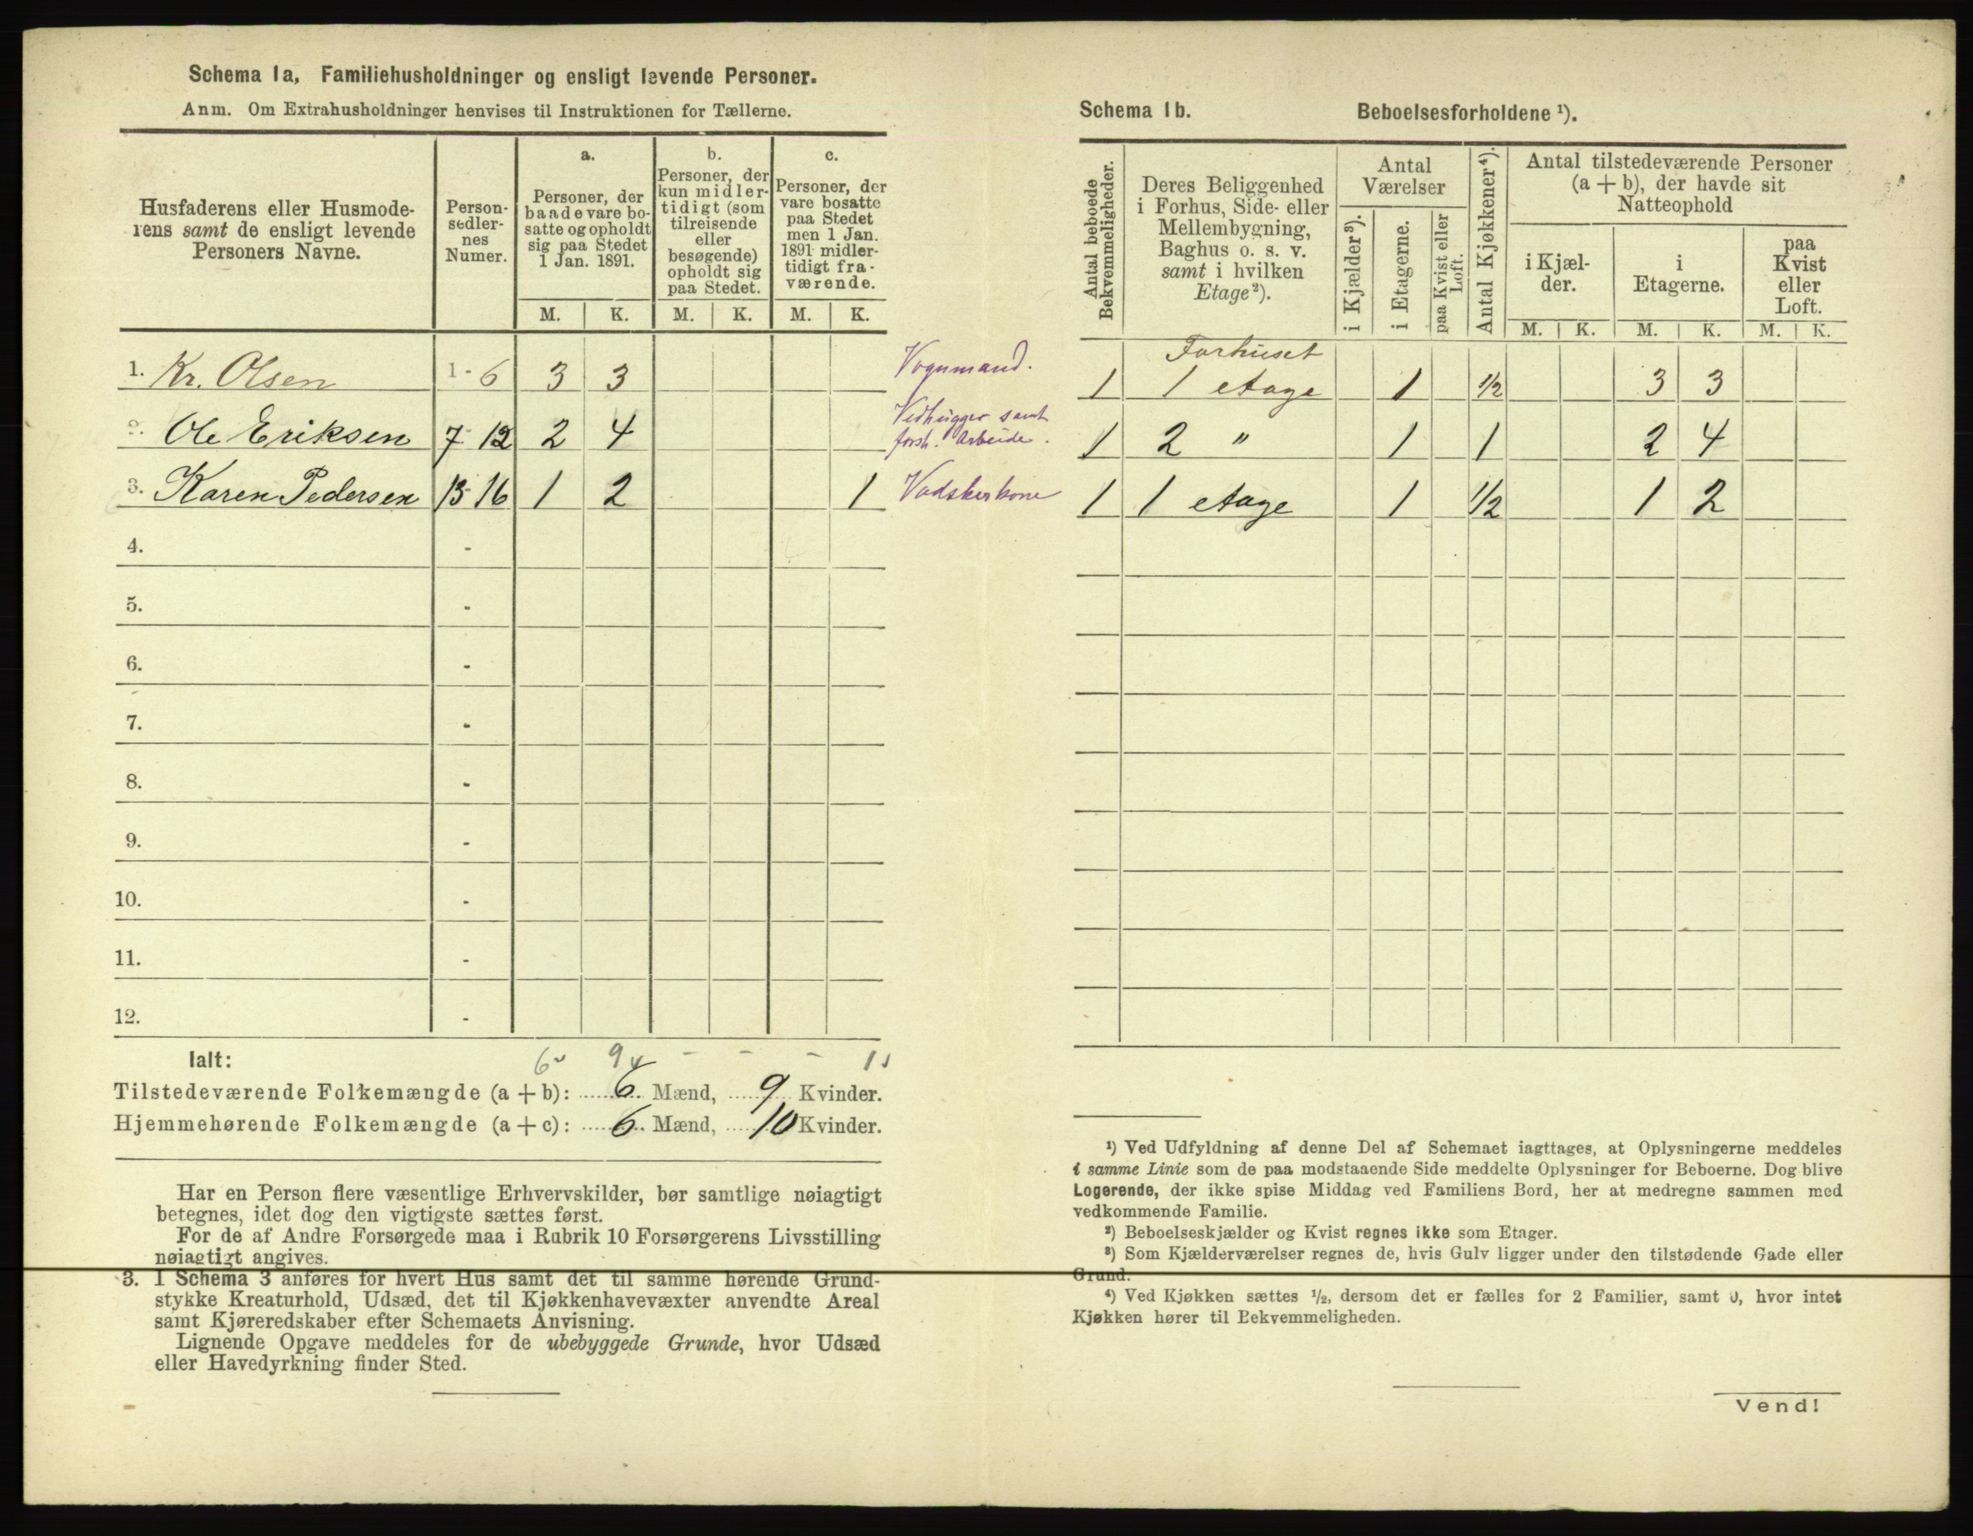 Schema 1a, Familiehusholdninger og ensligt levende Personer.
Anm. Om Extrahusholdninger henvises til Instruktionen for Tællerne.
Husfaderens eller Husmode-
rens samt de ensligt levende
Personers Navne.
Person-
sedler-
nes
Numer.
a.
Personer, der
baade vare bo-
satte og opholdt
sig paa Stedet
1 Jan. 1891.
b.
Personer, der
kun midler-
tidigt (som
tilreisende
eller
besøgende)
opholdt sig
paa Stedet.
c.
Personer, der
vare bosatte
paa Stedet
men 1 Jan.
1891 midler-
tidigt fra-
værende.
M. K. M. K. M. K.
1. Kr. Olsen 1-6 3 3 Vognmand.
2. Ole Eriksen 7-12 2 4 Vedhugger samt
forsk. Arbeide.
3. Karen Pedersen 13-16 1 2 1 Vadskerkone
4. -
5. -
6. -
7. -
8. -
9. -
10. -
11. -
12. -
Ialt: 6 9 - - - 1
Tilstedeværende Folkemængde (a + b): 6 Mænd, 9 Kvinder.
Hjemmehørende Folkemængde (a + c): 6 Mænd, 10 Kvinder.
Har en Person flere væsentlige Erhvervskilder, bør samtlige nøiagtigt
betegnes, idet dog den vigtigste sættes først.
For de af Andre Forsørgede maa i Rubrik 10 Forsørgerens Livsstilling
nøiagtigt angives.
3. I Schema 3 anføres for hvert Hus samt det til samme hørende Grund-
stykke Kreaturhold, Udsæd, det til Kjøkkenhavevæxter anvendte Areal
samt Kjøreredskaber efter Schemaets Anvisning.
Lignende Opgave meddeles for de ubebyggede Grunde, hvor Udsæd
eller Havedyrkning finder Sted.
Schema 1b. Beboelsesforholdene ¹).
Antal beboede
Bekvemmeligheder.
Deres Beliggenhed
i Forhus, Side- eller
Mellembygning,
Baghus o. s. v.
samt i hvilken
Etage²).
Antal
Værelser
i Kjælder³).
i Etagerne.
paa Kvist eller
Loft.
Antal Kjøkkener⁴).
Antal tilstedeværende Personer
(a + b), der havde sit
Natteophold
i Kjæl-
der.
i
Etagerne.
paa
Kvist
eller
Loft.
M. K. M. K. M. K.
Forhuset
1 1 etage 1 1/2 3 3
1 2 " 1 1 2 4
1 1 etage 1 1/2 1 2
¹) Ved Udfyldning af denne Del af Schemaet iagttages, at Oplysningerne meddeles
i samme Linie som de paa modstaaende Side meddelte Oplysninger for Beboerne. Dog blive
Logerende, der ikke spise Middag ved Familiens Bord, her at medregne sammen med
vedkommende Familie.
²) Beboelseskjælder og Kvist regnes ikke som Etager.
³) Som Kjælderværelser regnes de, hvis Gulv ligger under den tilstødende Gade eller
Grund.
⁴) Ved Kjøkken sættes 1/2, dersom det er fælles for 2 Familier, samt 0, hvor intet
Kjøkken hører til Bekvemmeligheden.
Vend!